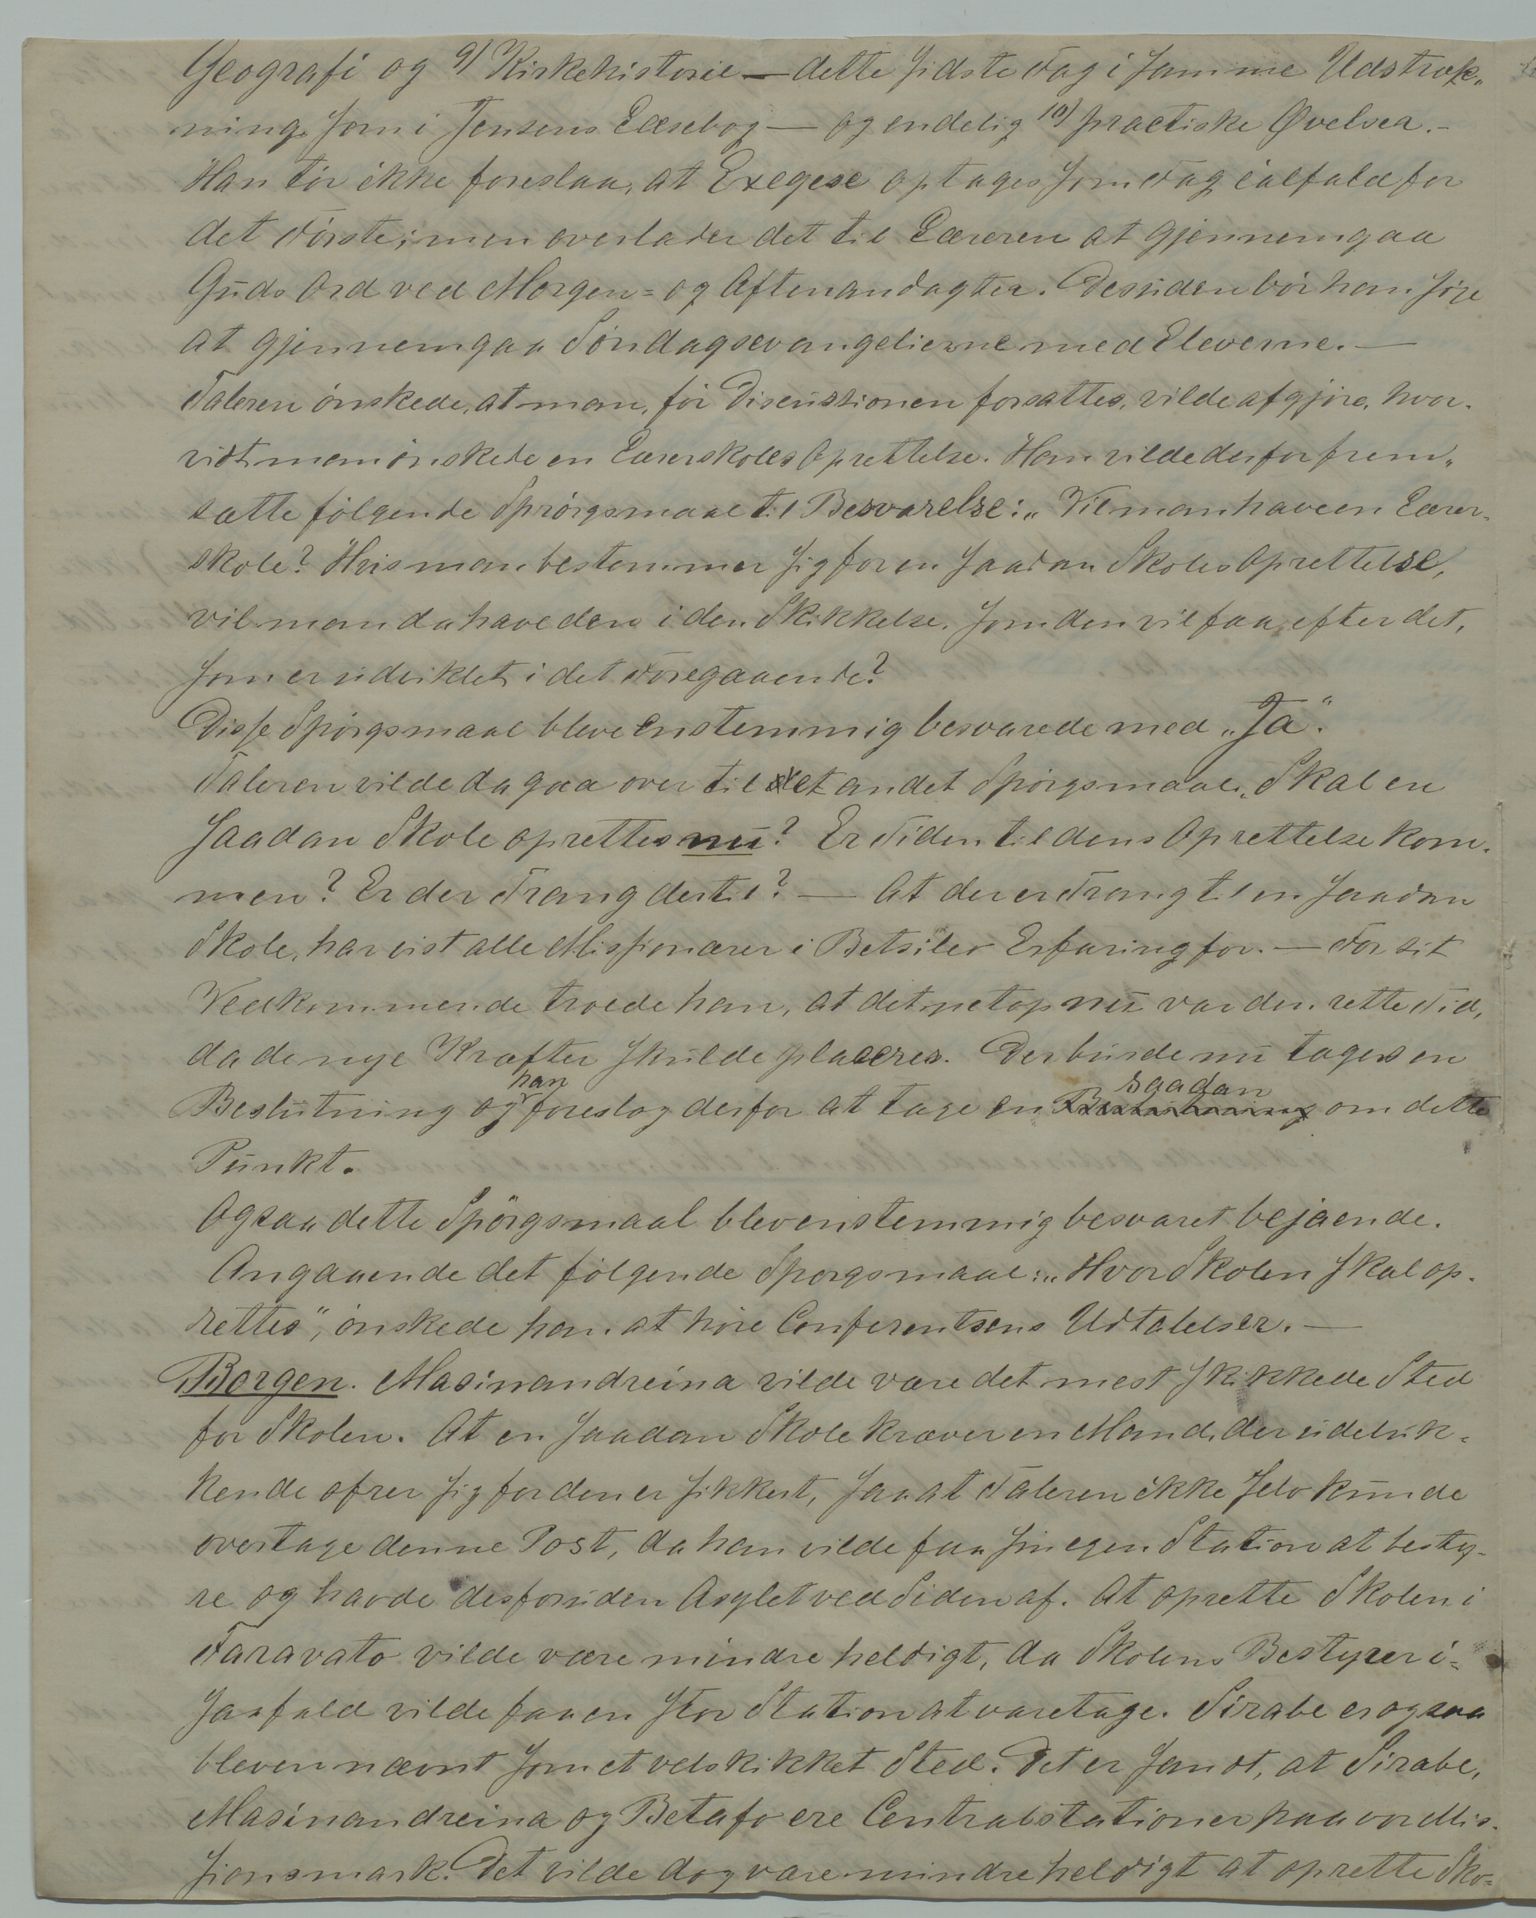 Geografi og 9) Kirkehistorie — dette sidste Fag i samme Udstræk„
ning som i Jensens Læsebog — og endelig 10) practiske Øvelser. —
Han tør ikke foreslaa, at Exegese optages som Fag ialfald for
det Første; men overlader det til Læreren at gjennemgaa
Guds Ord ved Morgen= og Aftenandagter. Desuden bør han søge
at gjennemgaa Søndagsevangelierne med Eleverne. —
Taleren ønskede, at man, før Discussionen forsattes, vilde afgjøre, hvor-
vidt man ønskede en Lærerskoles Oprettelse. Han vilde derfor frem„
sætte følgende Spørgsmaal til Besvarelse: „Vil man have en Lærer-
skole? Hvis man bestemmer sig for en saadan Skoles Oprettelse,
vil man da have den i den Skikkelse, som den vil faa efter det,
som er udviklet i det Foregaaende?
Disse Spørgsmaal bleve enstemmig besvarede med „Ja“.
Taleren vilde da gaa over til et andet Spørgsmaal: „Skal en
saadan Skole oprettes nu? Er Tiden til dens Oprettelse kom-
men? Er der Trang dertil? — At der er Trang til en saadan
Skole, har vist alle Missionærer i Betsileo Erfaring for. — For sit
Vedkommende troede han, at det netop nu var den rette Tid,
da de nye Kræfter skulde placeres. Der burde nu tages en
Beslutning og han foreslog derfor at tage en saadan om dette
Punkt.
Ogsaa dette Spørgsmaal blev enstemmig besvaret bejaende.
Angaaende det følgende Spørgsmaal: „Hvor Skolen skal op-
rettes“, ønskede han at høre Conferentsens Udtalelser. —
Borgen. Masinandreina vilde være det mest skikkede Sted
for Skolen. At en saadan Skole kræver en Mand, der udeluk-
kende ofrer sig for den er sikkert, saa at Taleren ikke selv kunde
overtage denne Post, da han vilde faa sin egen Station at besty-
re og havde desforuden Asylet ved Siden af. At oprette Skolen i
Faravato vilde være mindre heldigt, da Skolens Bestyrer i=
saafald vilde faa en stor Station at varetage. Sirabe er ogsaa
bleven nævnt som et velskikket Sted. Det er sandt, at Sirabe,
Masinandreina og Betafo ere Centralstationer paa vor Mis-
sionsmark. Det vilde dog være mindre heldigt at oprette Sko=